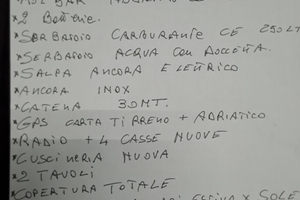 *2 Batterie.
*SERBATOIO CARBURANTE CE 250LT
*SERBATOIO ACQUA CON DOCCETTA.
*SALPA ANCORA ELETTRICO
*ANCORA INOX
*CATENA 30MT.
*GPS CARTA TIRRENO + ADRIATICO
*RADIO + 4 CASSE NUOVE
*CUSCINERIA NUOVA
*2 TAVOLI
*COPERTURA TOTALE
ESTIVA X SOLE